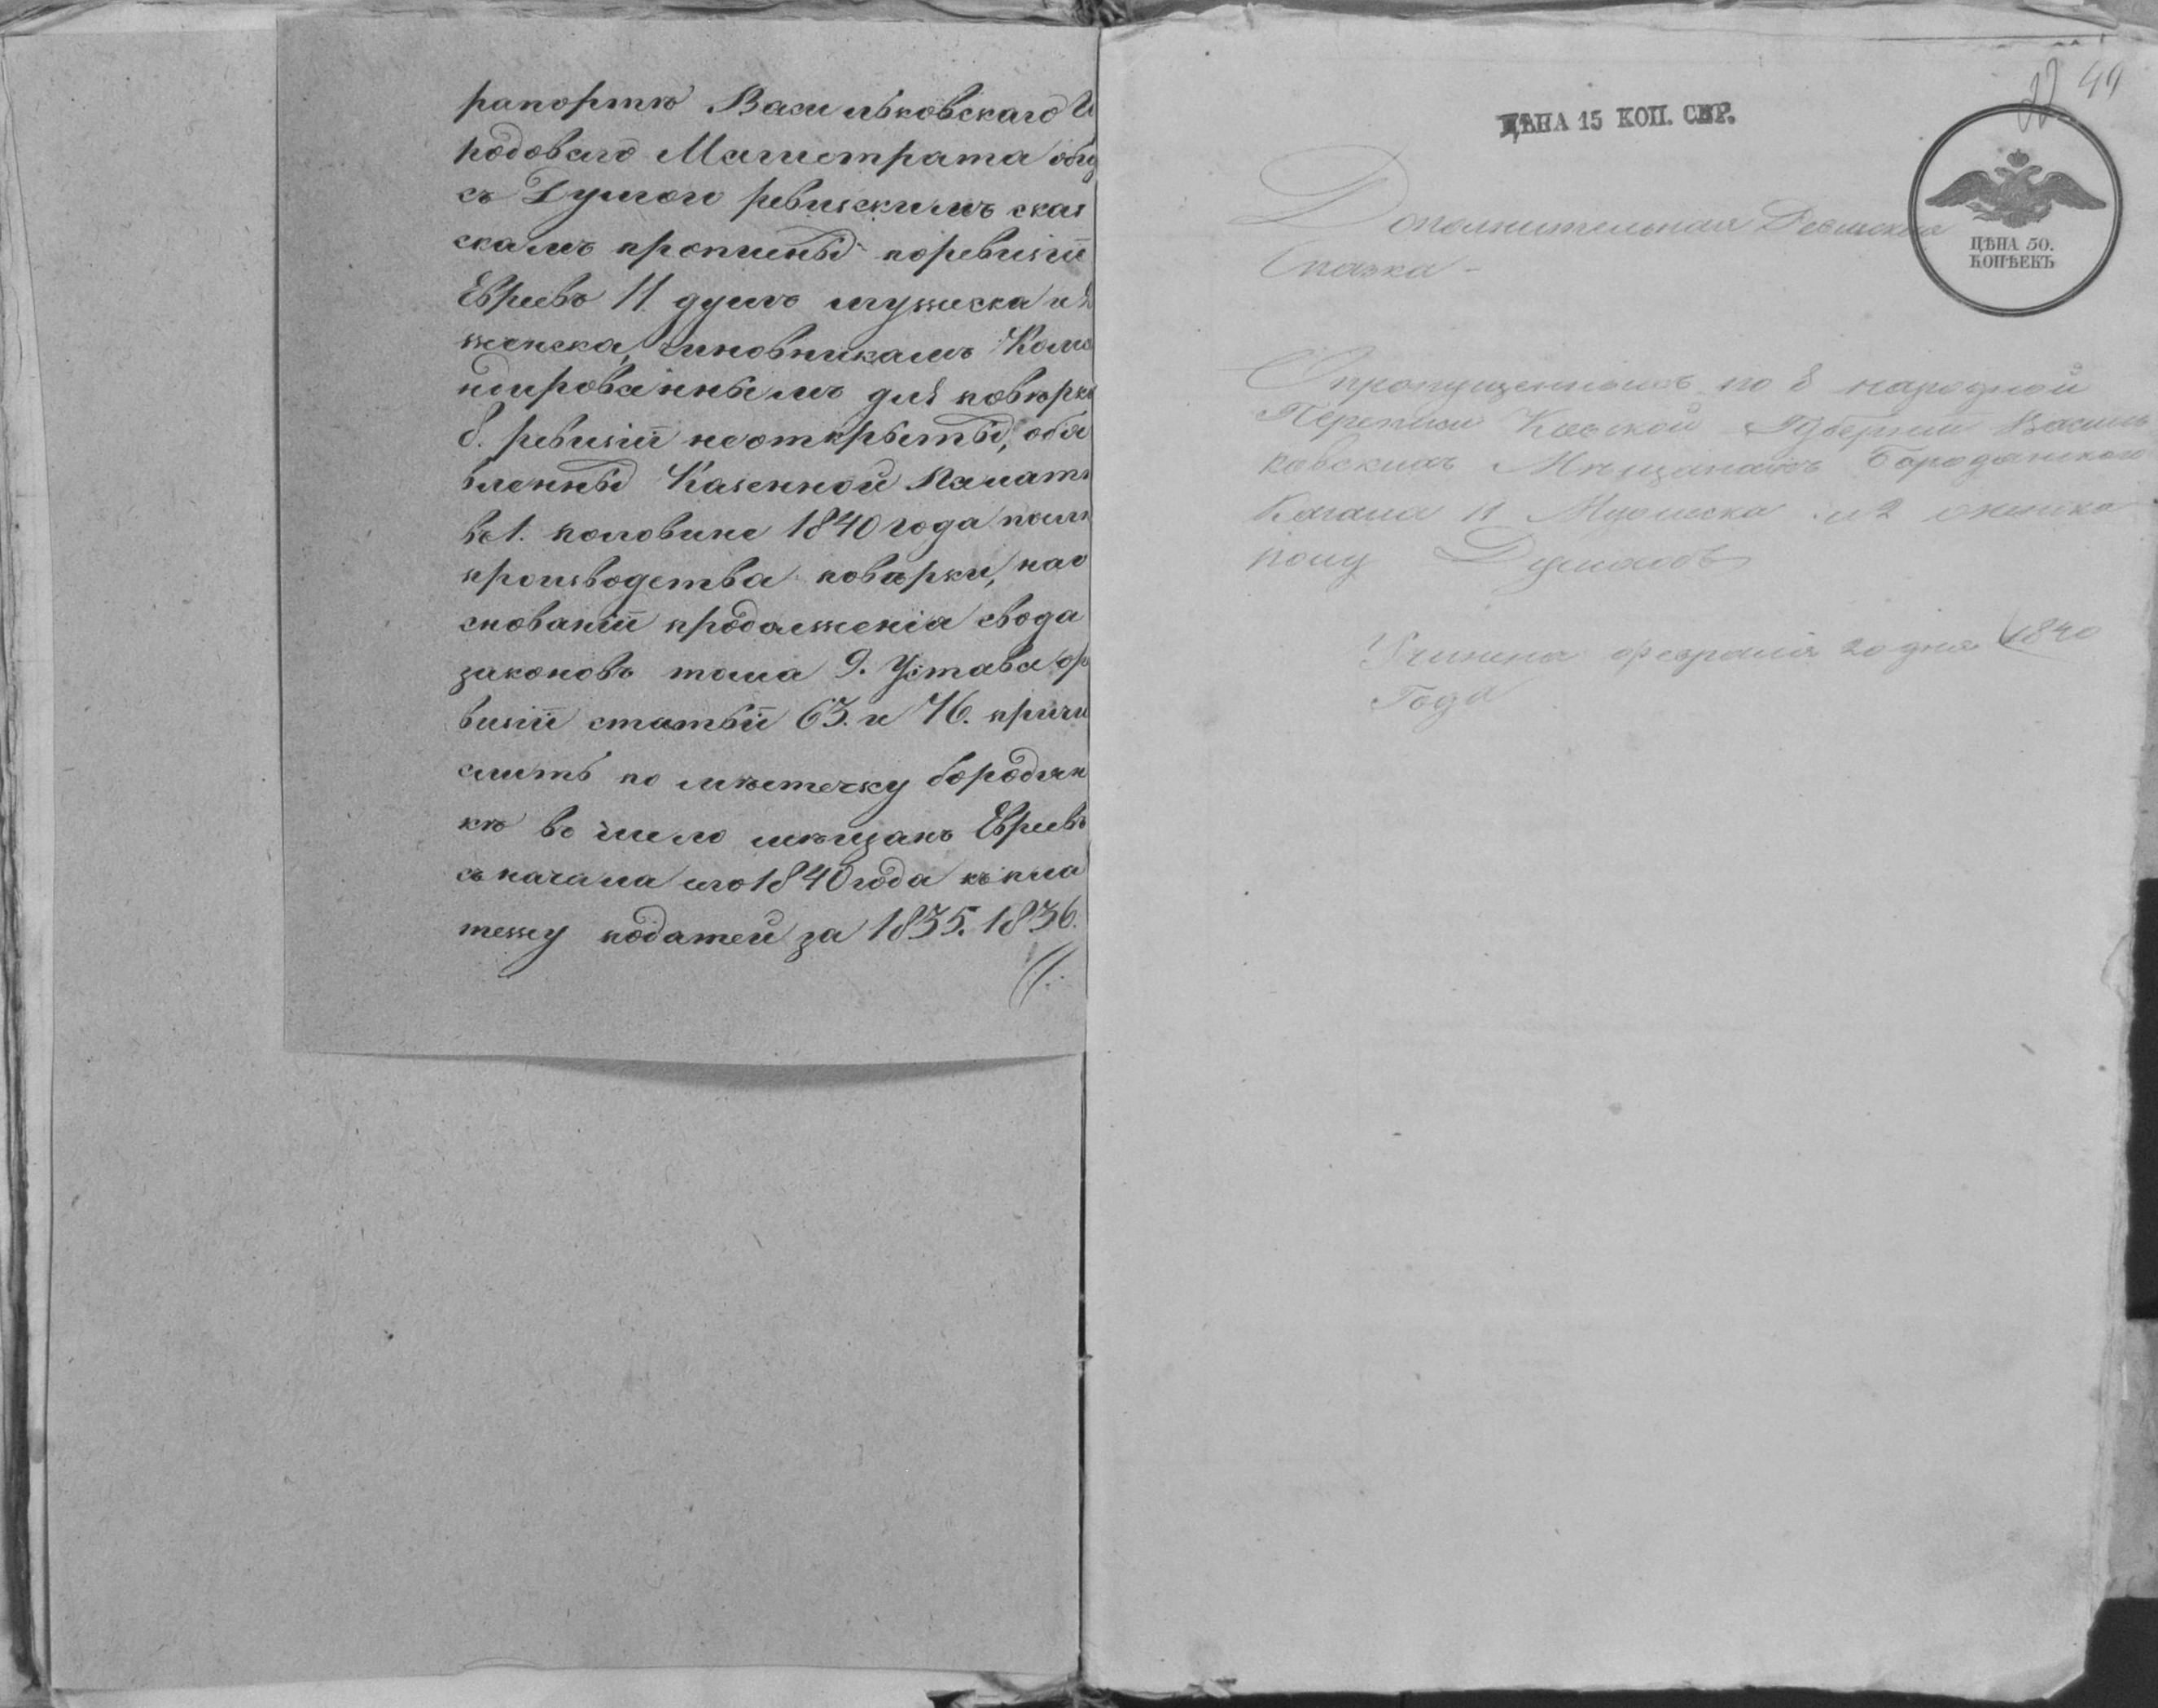 рапортѣ Васильковскаго Го
родоваго Магистрата общ
съ Думой ревизскимъ сказ
скамъ пропущены поревизіи
Евреевъ 11 душъ мужеска и 2
женска, чиновниками Кома
ндированными для повѣрки
8. ревизіи неоткрыты, объя
вленны Казенной Палатѣ
въ 1. половине 1840 года после
производства поверки, нао
снованіи продолженія свода
законовъ тома 9. Устава о ре
визіи статьи 63. и 76. причи
слить по мѣстечку бородян
кѣ въ число мѣщанъ Евреевъ
съ начала его 1840 года къ пла
тежу податей за 1835. 1836.
22 49
ЦѢНА 15 КОП. СЕР.
ЦѢНА 50.
КОПѢЕКЪ
Дополнительная Ревизская
Сказка
О пропущенныхъ по 8 народной
Переписи Кіевской Губерніи Василь
ковскихъ Мѣщанахъ Бородянского
Кагала 11 Мужеска и 2 женска
полу Душахъ
Учинена февраля 20 дня 1840
Года